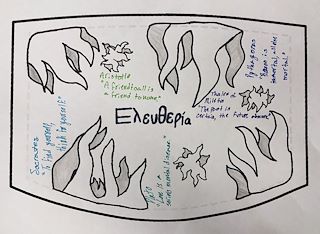 Aristotle
"A friend to all is
a friend to none."
Pythagoras
"Reason is
immortal, all else
mortal."
Thales of
Miletus
"The past is
certain, the future obscure."
Ελευθερία
Socrates
"To find yourself,
think for yourself."
Plato
"Love is a
serious mental disease."